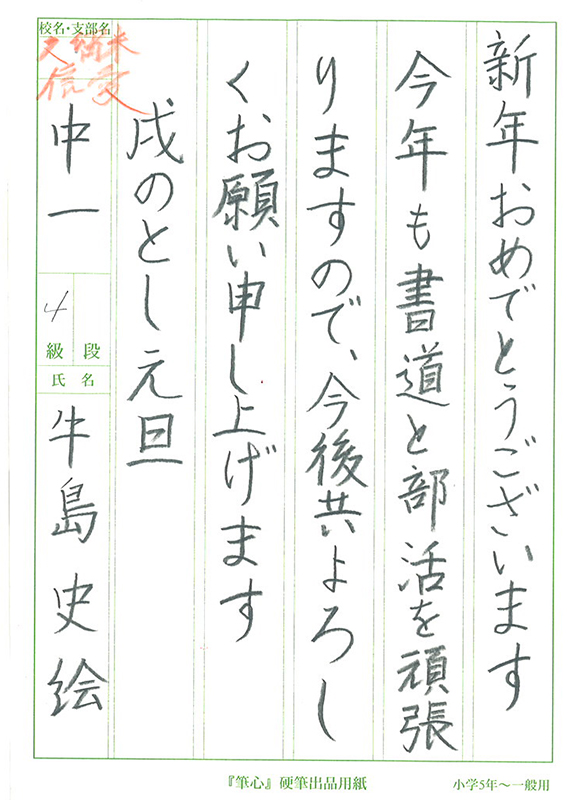 新年おめでとうございます
今年も書道と部活を頑張
りますので、今後共よろし
くお願い申し上げます
戌のとし元旦
校名・支部名
久留米
信愛
中一
4
級 段
氏名
牛島史絵
『筆心』硬筆出品用紙
小学5年〜一般用